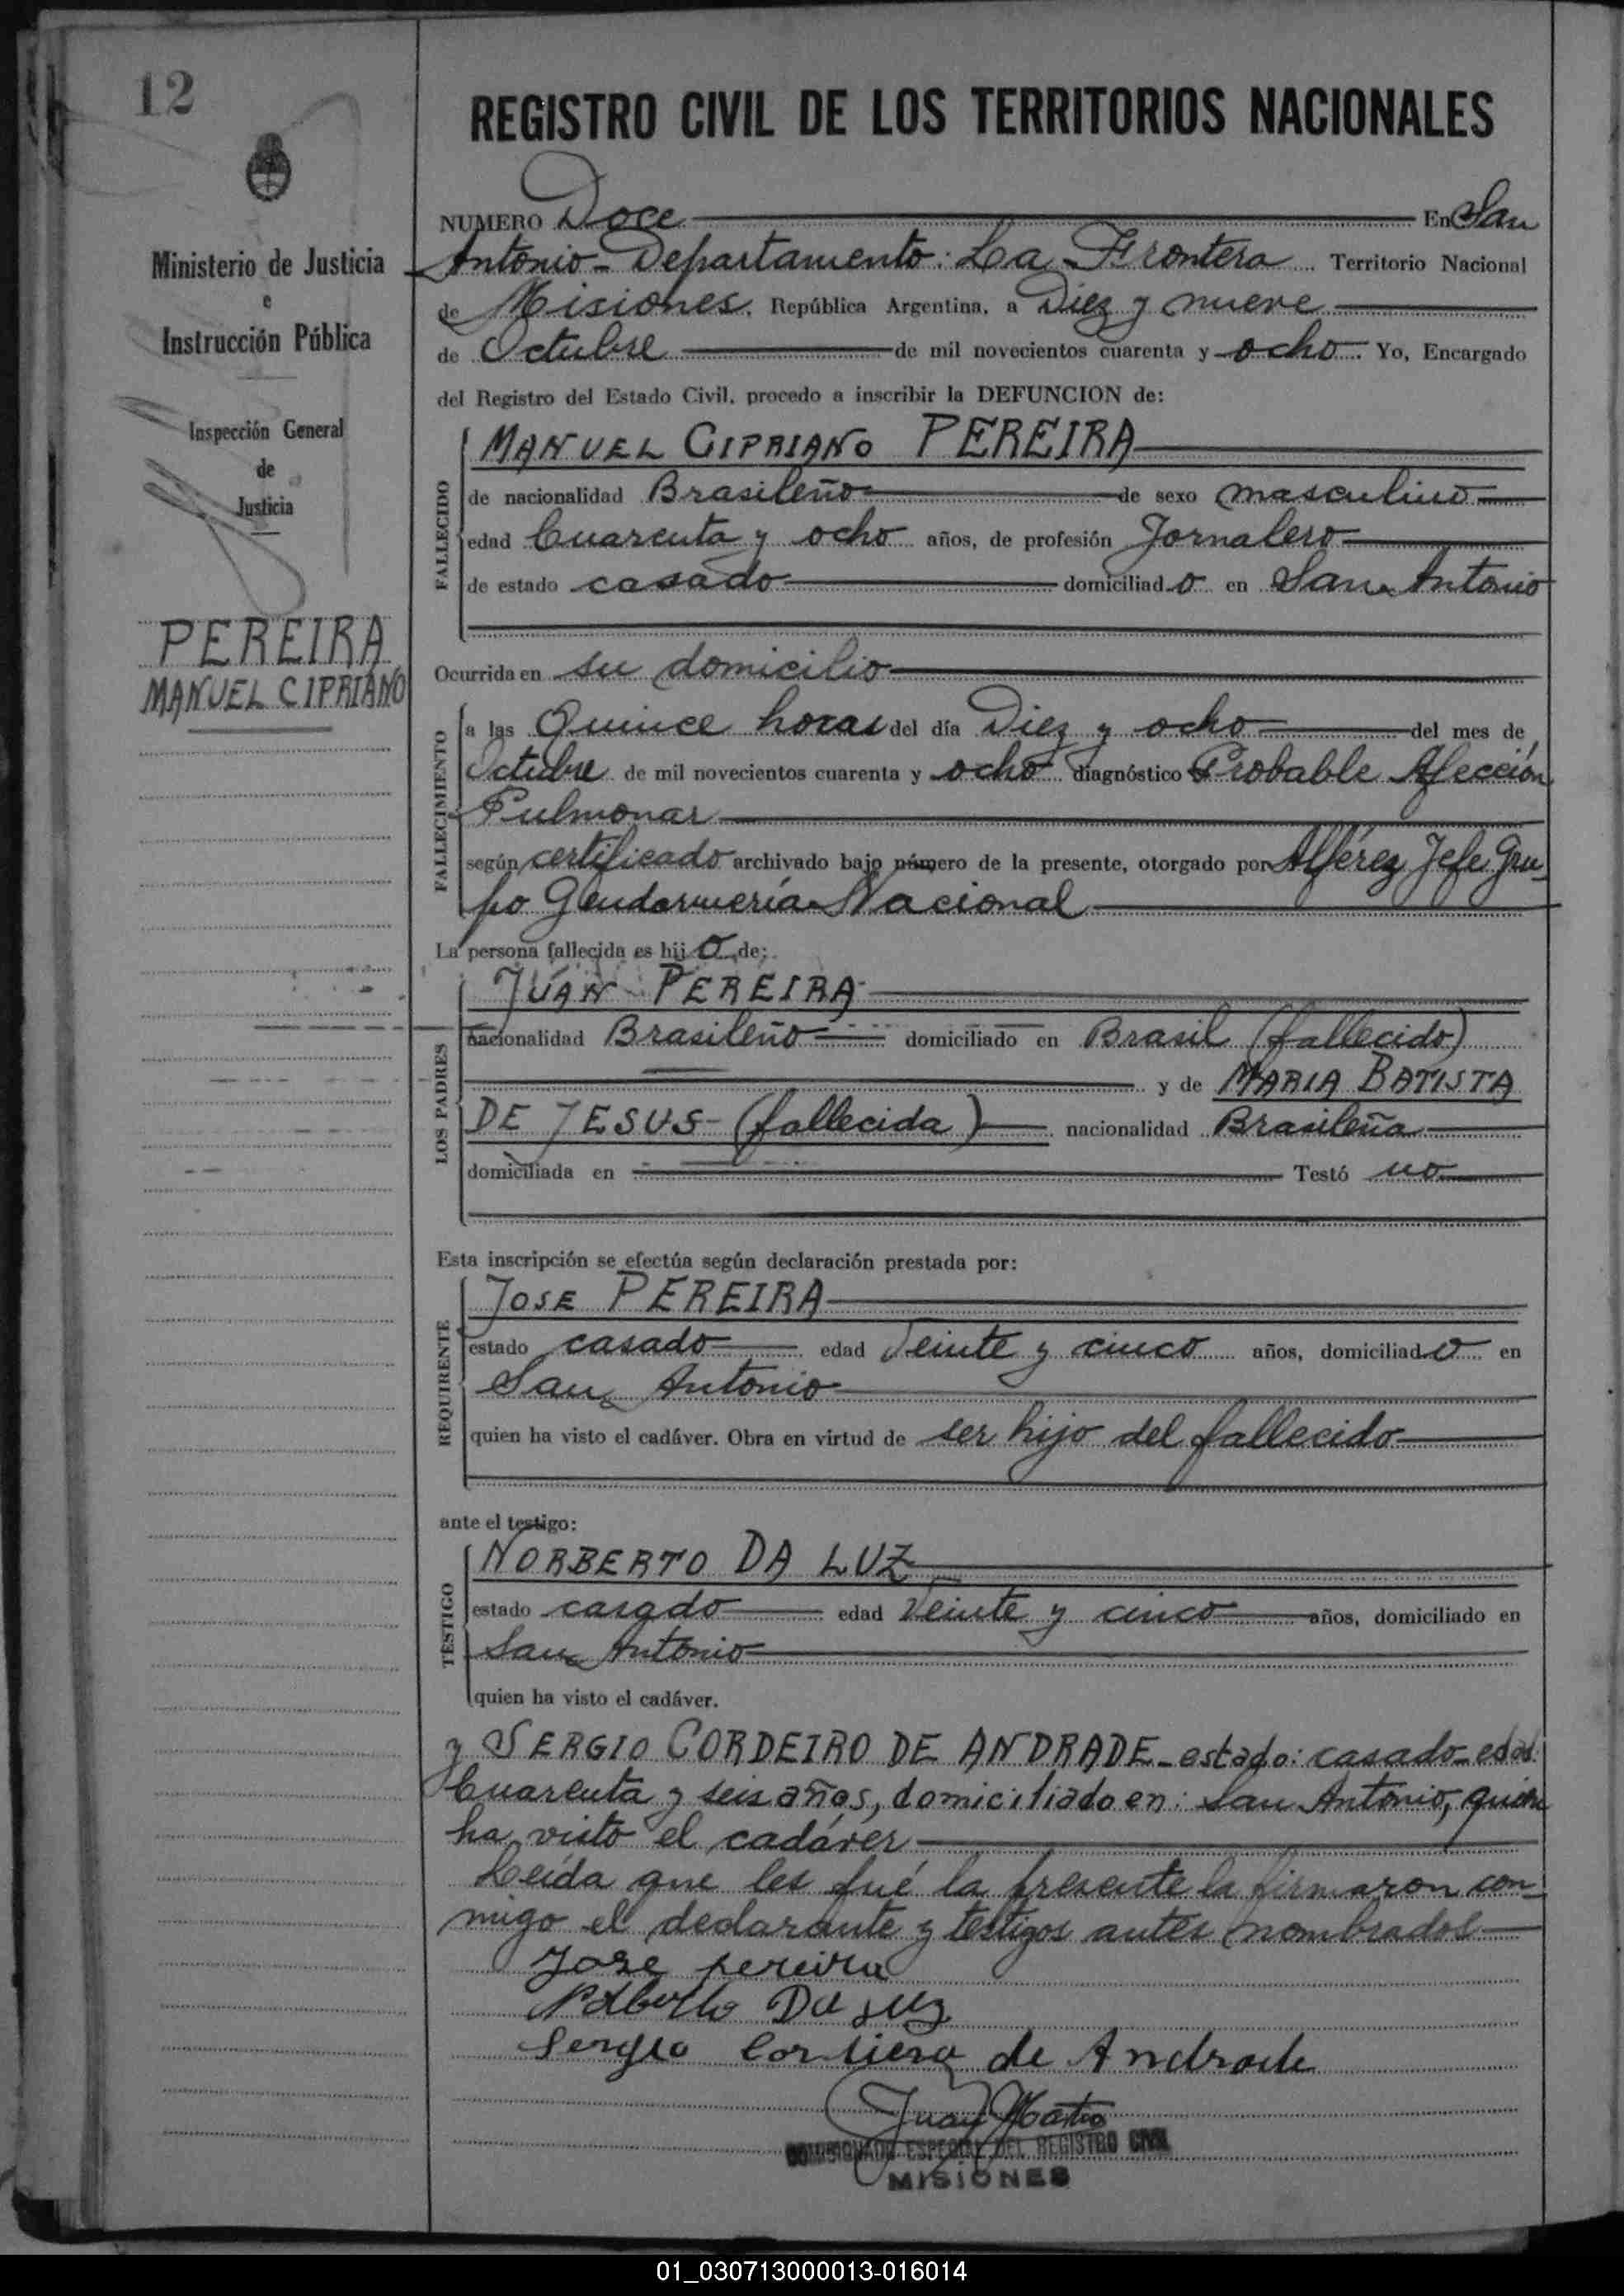 12
Ministerio de Justicia
e
Instrucción Pública
Inspección General
de
Justicia
PEREIRA
MANUEL CIPRIANO
REGISTRO CIVIL DE LOS TERRITORIOS NACIONALES
NUMERO Doce En San
Antonio - Departamento: La Frontera Territorio Nacional
de Misiones, República Argentina, a Diez y nueve
de Octubre de mil novecientos cuarenta y ocho. Yo, Encargado
del Registro del Estado Civil, procedo a inscribir la DEFUNCION de:
FALLECIDO
MANUEL CIPRIANO PEREIRA
de nacionalidad Brasileño de sexo masculino
edad Cuarenta y ocho años, de profesión Jornalero
de estado casado domiciliado en San Antonio
Ocurrida en su domicilio
FALLECIMIENTO
a las Quince horas del día Diez y ocho del mes de
Octubre de mil novecientos cuarenta y ocho diagnóstico Probable Afección
Pulmonar
según certificado archivado bajo número de la presente, otorgado por Alférez Jefe Gru-
po Gendarmería Nacional
La persona fallecida es hijo de:
LOS PADRES
JUAN PEREIRA
nacionalidad Brasileño domiciliado en Brasil (fallecido)
y de MARIA BATISTA
DE JESUS - (fallecida) nacionalidad Brasileña
domiciliada en Testó no
Esta inscripción se efectúa según declaración prestada por:
REQUIRENTE
JOSE PEREIRA
estado casado edad Veinte y cinco años, domiciliado en
San Antonio
quien ha visto el cadáver. Obra en virtud de ser hijo del fallecido
ante el testigo:
TESTIGO
NORBERTO DA LUZ
estado casado edad Veinte y cinco años, domiciliado en
San Antonio
quien ha visto el cadáver.
y SERGIO CORDEIRO DE ANDRADE - estado: casado - edad:
Cuarenta y seis años, domiciliado en: San Antonio, quien
ha visto el cadáver
Leída que les fué la presente la firmaron con-
migo el declarante y testigos antes nombrados
Jose pereira
Norberto Da Luz
Sergio Cordiero de Andrade
Juan
COMISIONADO ESPECIAL DEL REGISTRO CIVIL
MISIONES
01_030713000013-016014